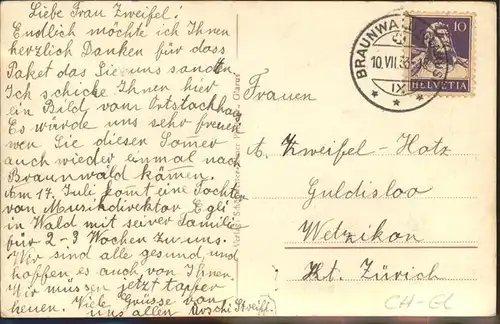 Liebe Frau Zweifel!
Endlich möchte ich Ihnen
herzlich Danken für dass
Paket das Sie uns sandten.
Ich schicke Ihnen hier
ein Bild vom Ortstockhaus
Es würde uns sehr freuen
wen Sie diesen Somer
auch wieder einmal nach
Braunwald kämen.
Am 17. Juli komt eine Tochter
von Musikdirektor Egli
in Wald mit seiner Familie
für 2-3 Wochen zu uns.
Wir sind alle gesund, und
hoffen es auch von Ihnen.
Wir müssen jetzt tapfer
heuen. Viele Grüsse von
uns allen Urschi Streift.
BRAUNWALD
10.VII.36
IX
10
HELVETIA
Frauen
A. Zweifel-Hotz
Guldisloo
Wetzikon
Kt. Zürich
CH-GL